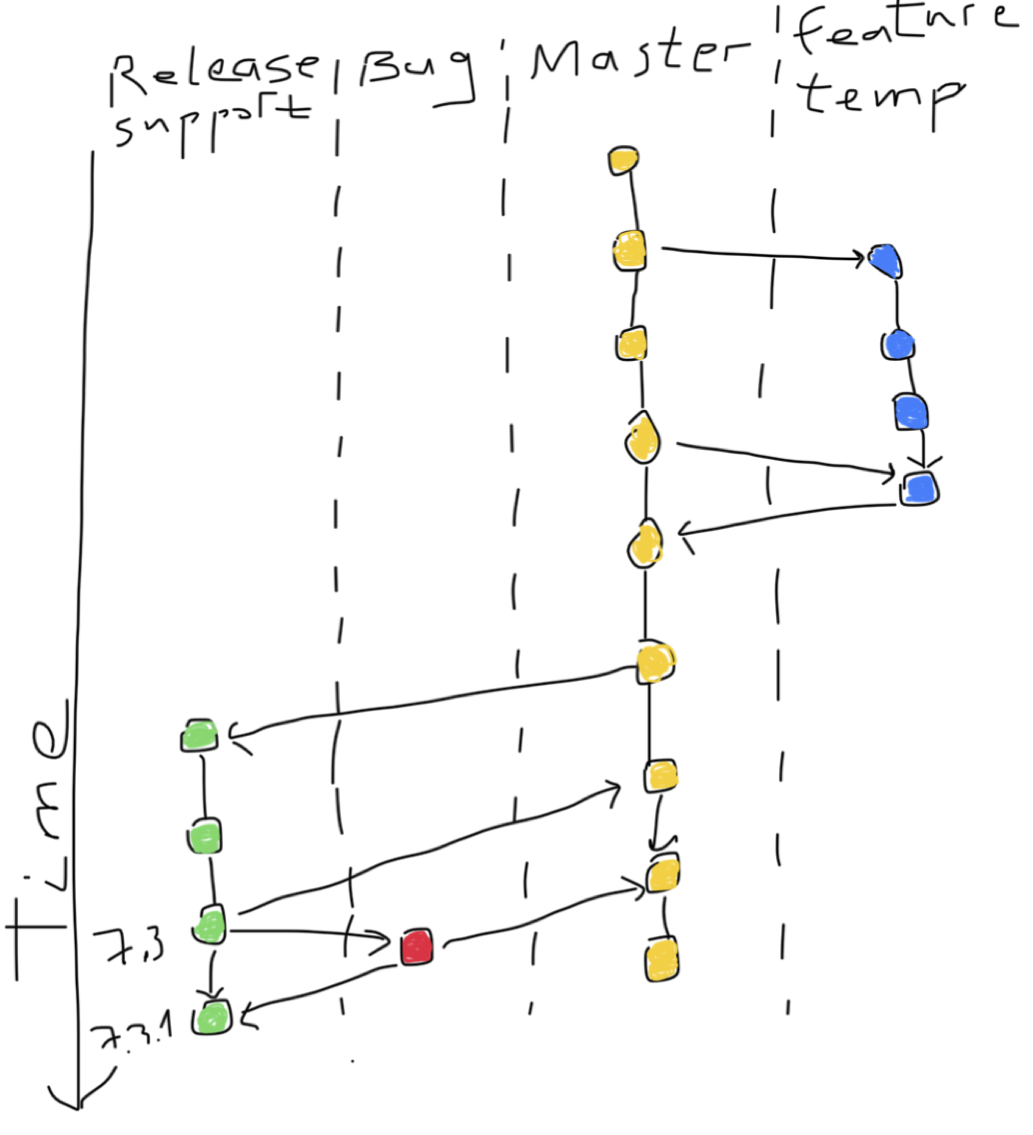 Release
support
Bug
Master
feature
temp
Time
7.3
7.3.1